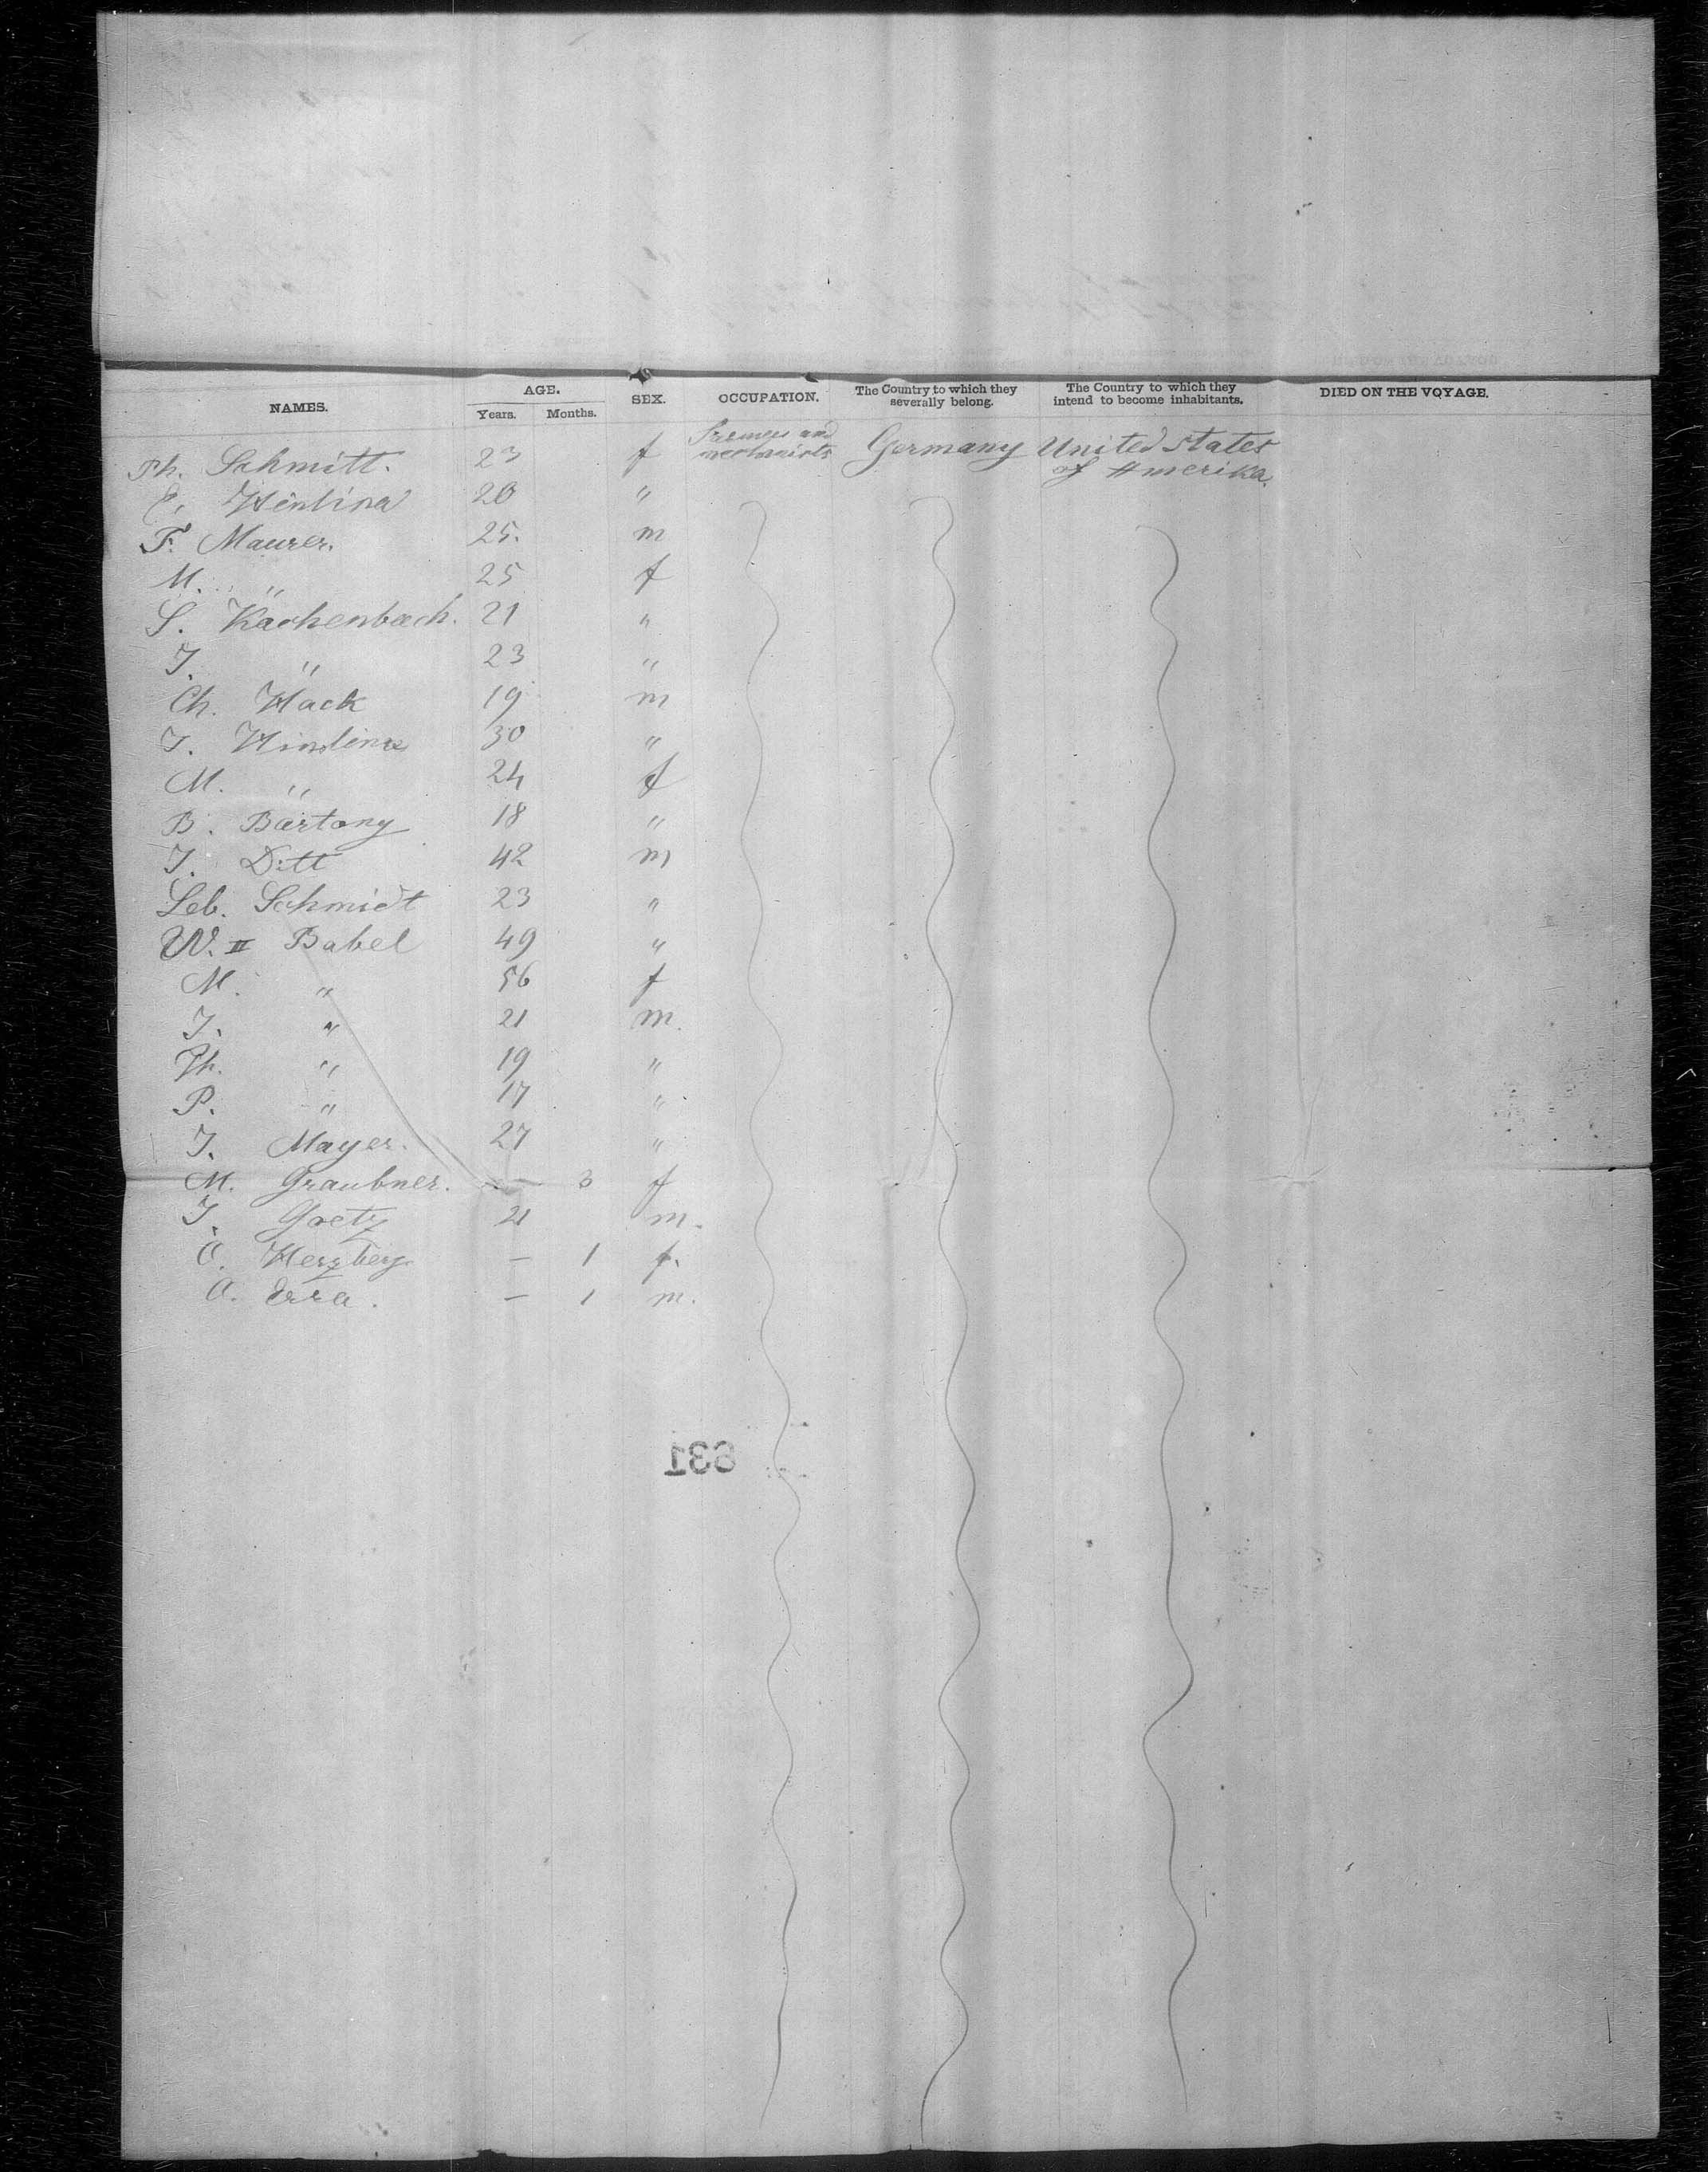 NAMES. AGE. Years. Months. SEX. OCCUPATION. The Country to which they severally belong. The Country to which they intend to become inhabitants. DIED ON THE VOYAGE.
Ph. Schmitt. 23 f Farmers and mechanists Germany United States of Amerika.
E. 20 "
F. Maurer. 25. m
M. " 25 f
S. Kachenbach. 21 "
J. " 23 "
Ch. Hack 19 m
J. 30 "
M. " 24 f
B. Bartony 18 "
J. Ditt 42 m
Seb. Schmidt 23 "
W. II Babel 49 "
M. " 56 f
J. " 21 m.
Ph. " 19 "
P. " 17 "
J. Mayer. 27 "
M. Graubner. — 3 f
J. Goetz 21 m.
O. Herzberg — 1 f.
O. — 1 m.
631